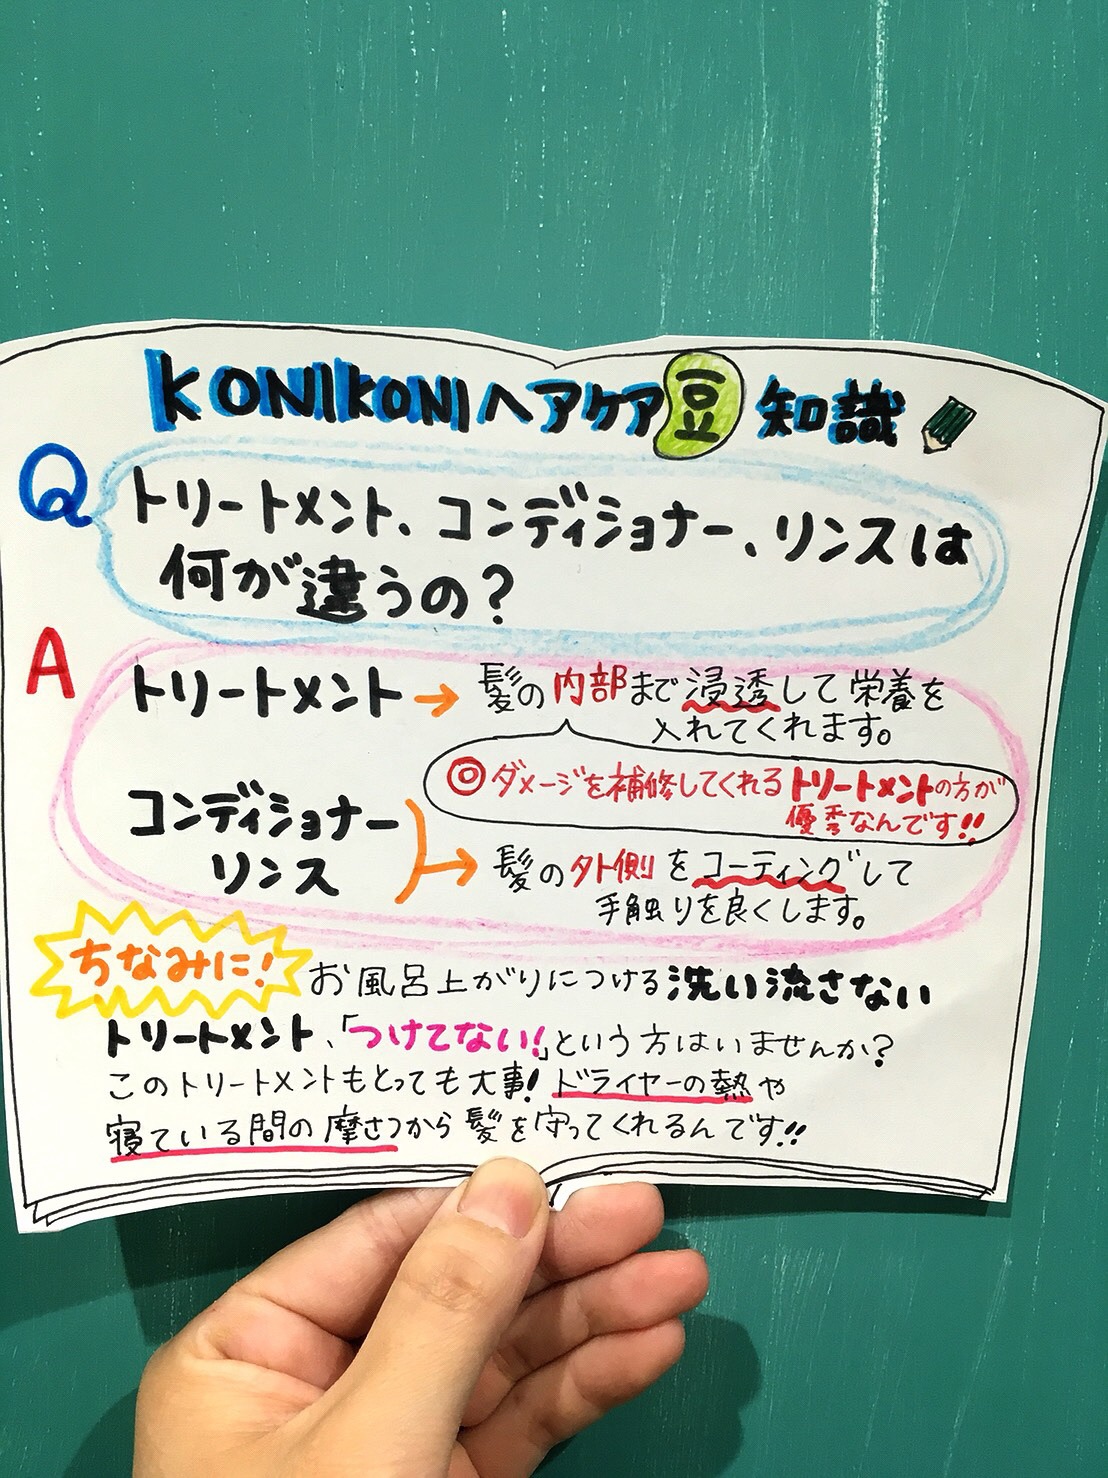 KONIKONIヘアケア豆知識
Q
トリートメント、コンディショナー、リンスは
何が違うの?
A
トリートメント→髪の内部まで浸透して栄養を
入れてくれます。
◎ダメージを補修してくれるトリートメントの方が
優秀なんです!!
コンディショナー
リンス
→髪の外側をコーティングして
手触りを良くします。
ちなみに!お風呂上がりにつける洗い流さない
トリートメント、「つけてない!」という方はいませんか?
このトリートメントもとっても大事!ドライヤーの熱や
寝ている間の摩さつから髪を守ってくれるんです!!